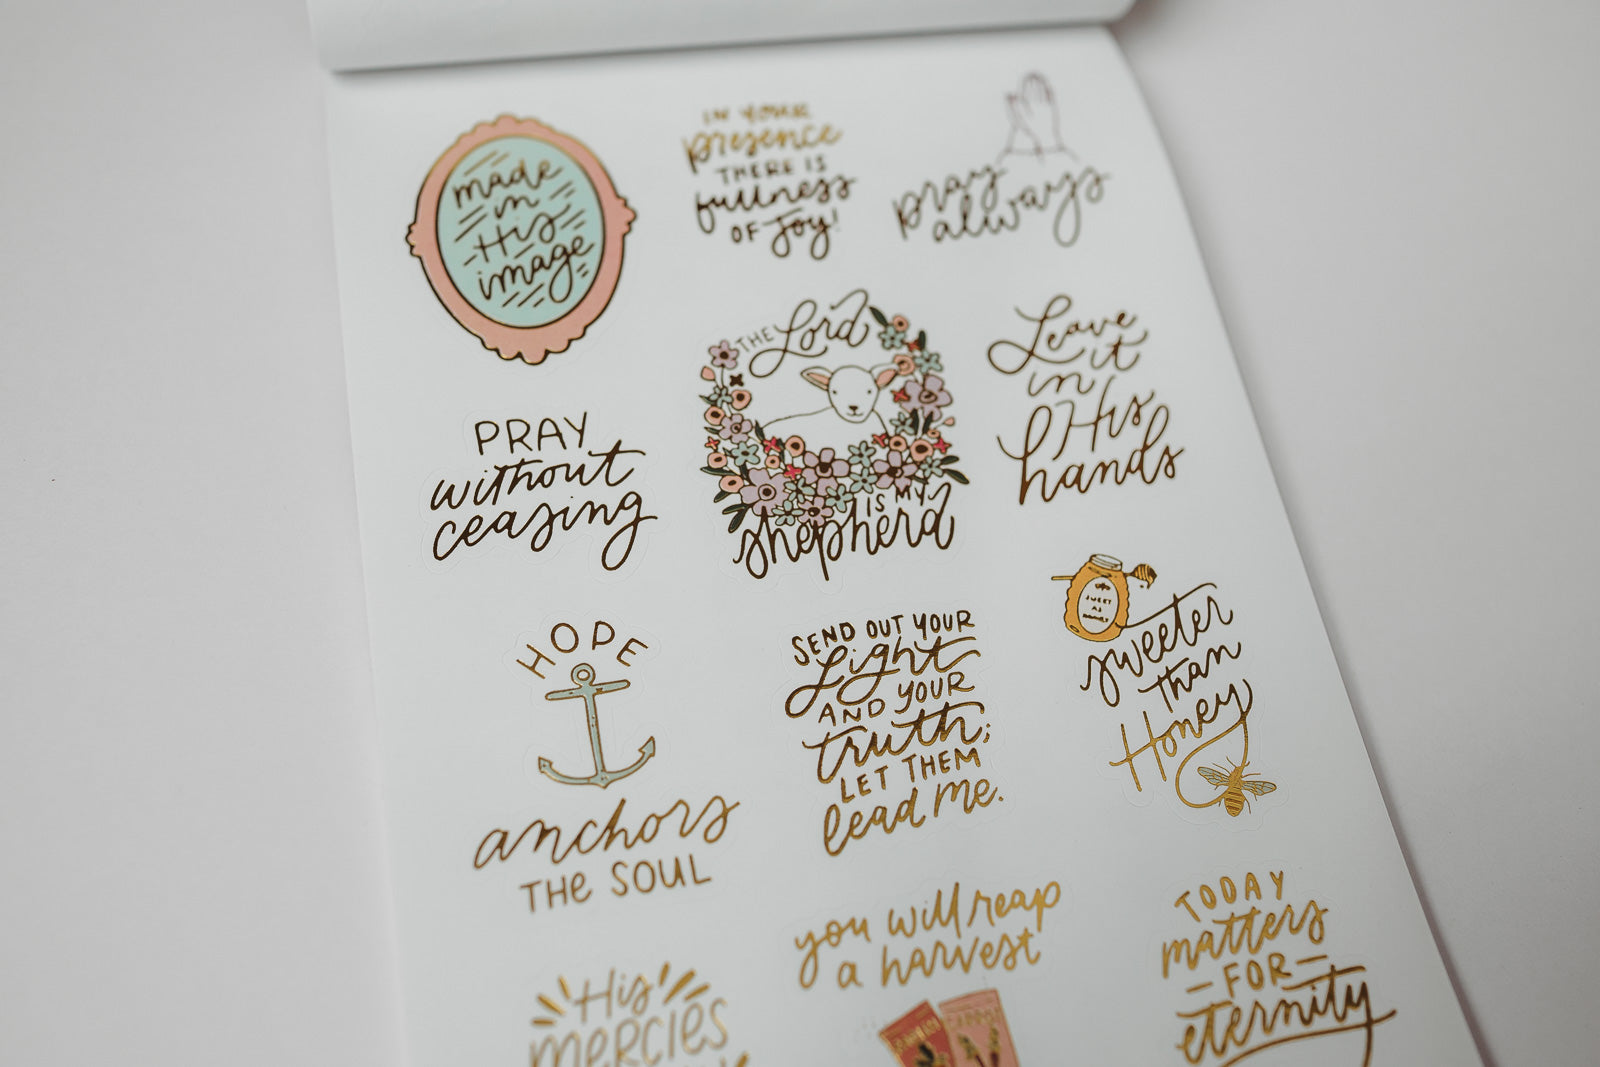 made
in
His
image
IN YOUR
presence
THERE IS
fullness
OF Joy!
pray
always
PRAY
without
ceasing
THE Lord
IS MY
shepherd
Leave
it
in
His
hands
HOPE
anchors
THE SOUL
SEND OUT YOUR
Light
AND YOUR
truth;
LET THEM
lead me.
SWEET
AS
HONEY
sweeter
than
Honey
His
MERCIES
you will reap
a harvest
TODAY
matters
-FOR-
eternity